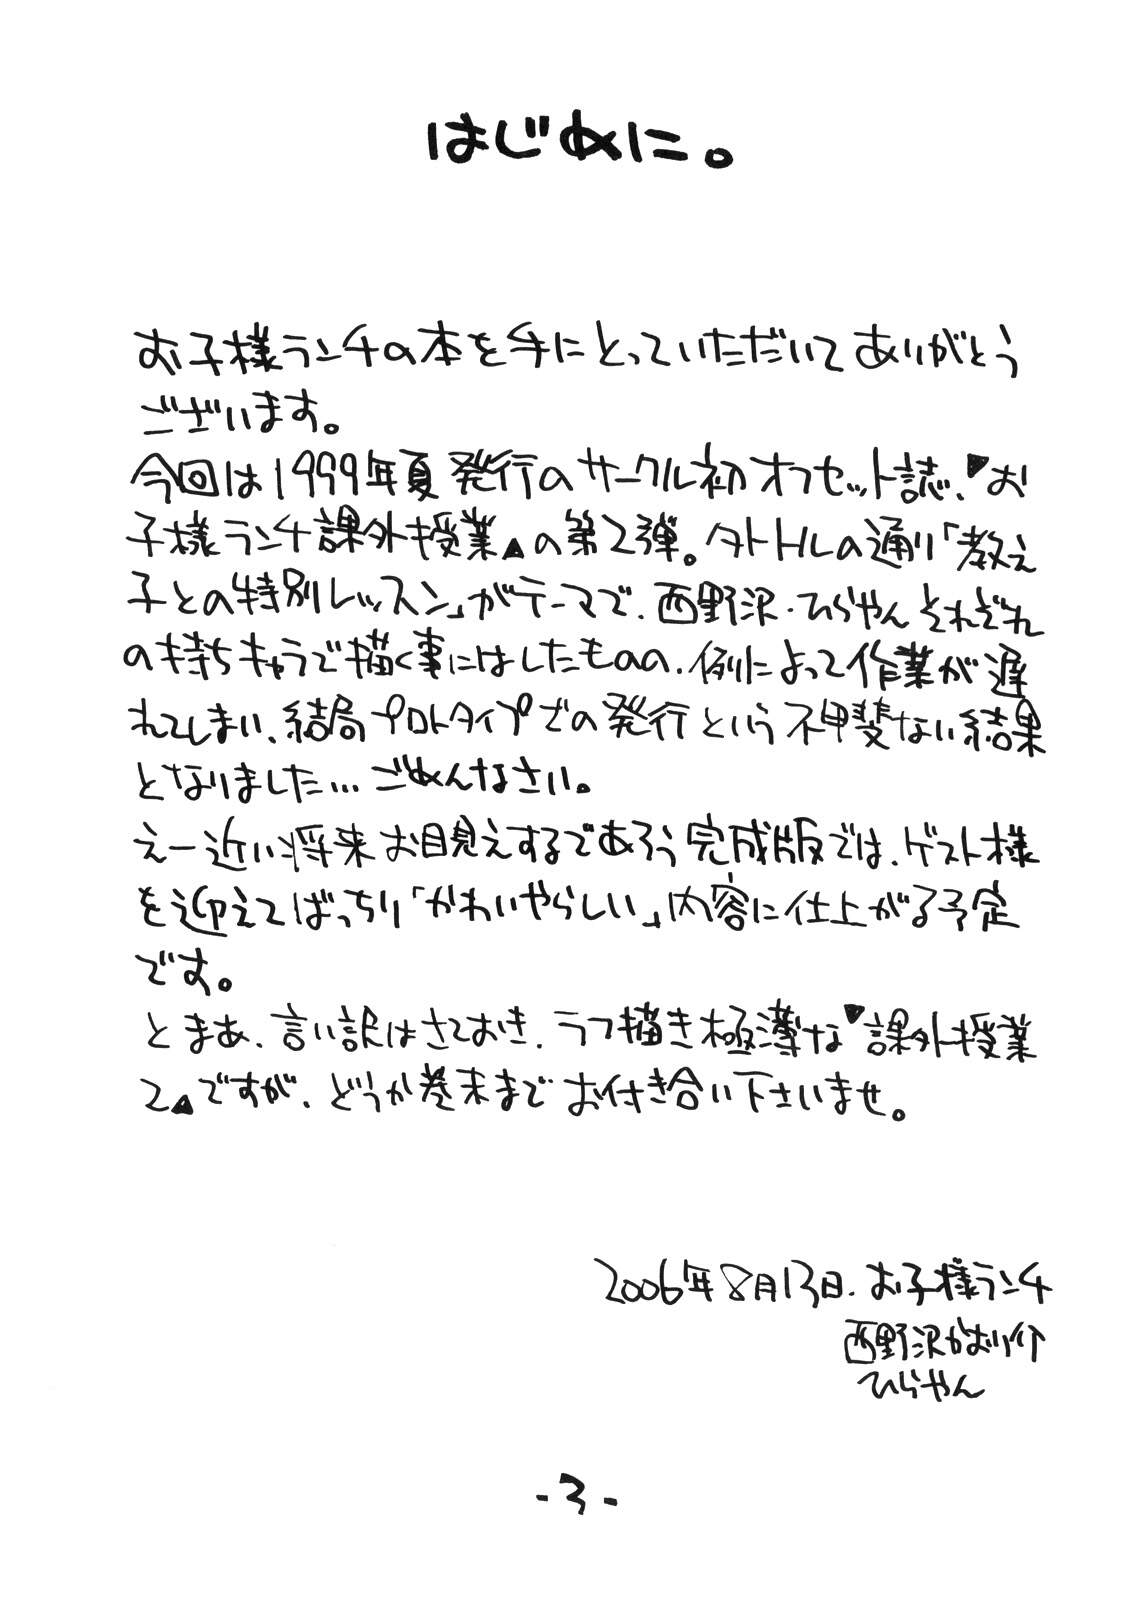 はじめに。
お子様ランチの本を手にとっていただいてありがとう
ございます。
今回は1999年夏発行のサークル初オフセット誌、〝お
子様ランチ課外授業〟の第2弾。タトトルの通り「教え
子との特別レッスン」がテーマで、西野沢・ひらやんそれぞれ
の持ちキャラで描く事にはしたものの、例によって作業が遅
れてしまい、結局プロトタイプでの発行という不甲斐ない結果
となりました…ごめんなさい。
えー近い将来お目見えするであろう完成版では、ゲスト様
を迎えてばっちり「かわいやらしい」内容に仕上がる予定
です。
とまあ、言い訳はさておき、ラフ描き極薄な〝課外授業
2〟ですが、どうか巻末までお付き合い下さいませ。
2006年8月13日、お子様ランチ
西野沢かおり介
ひらやん
-3-